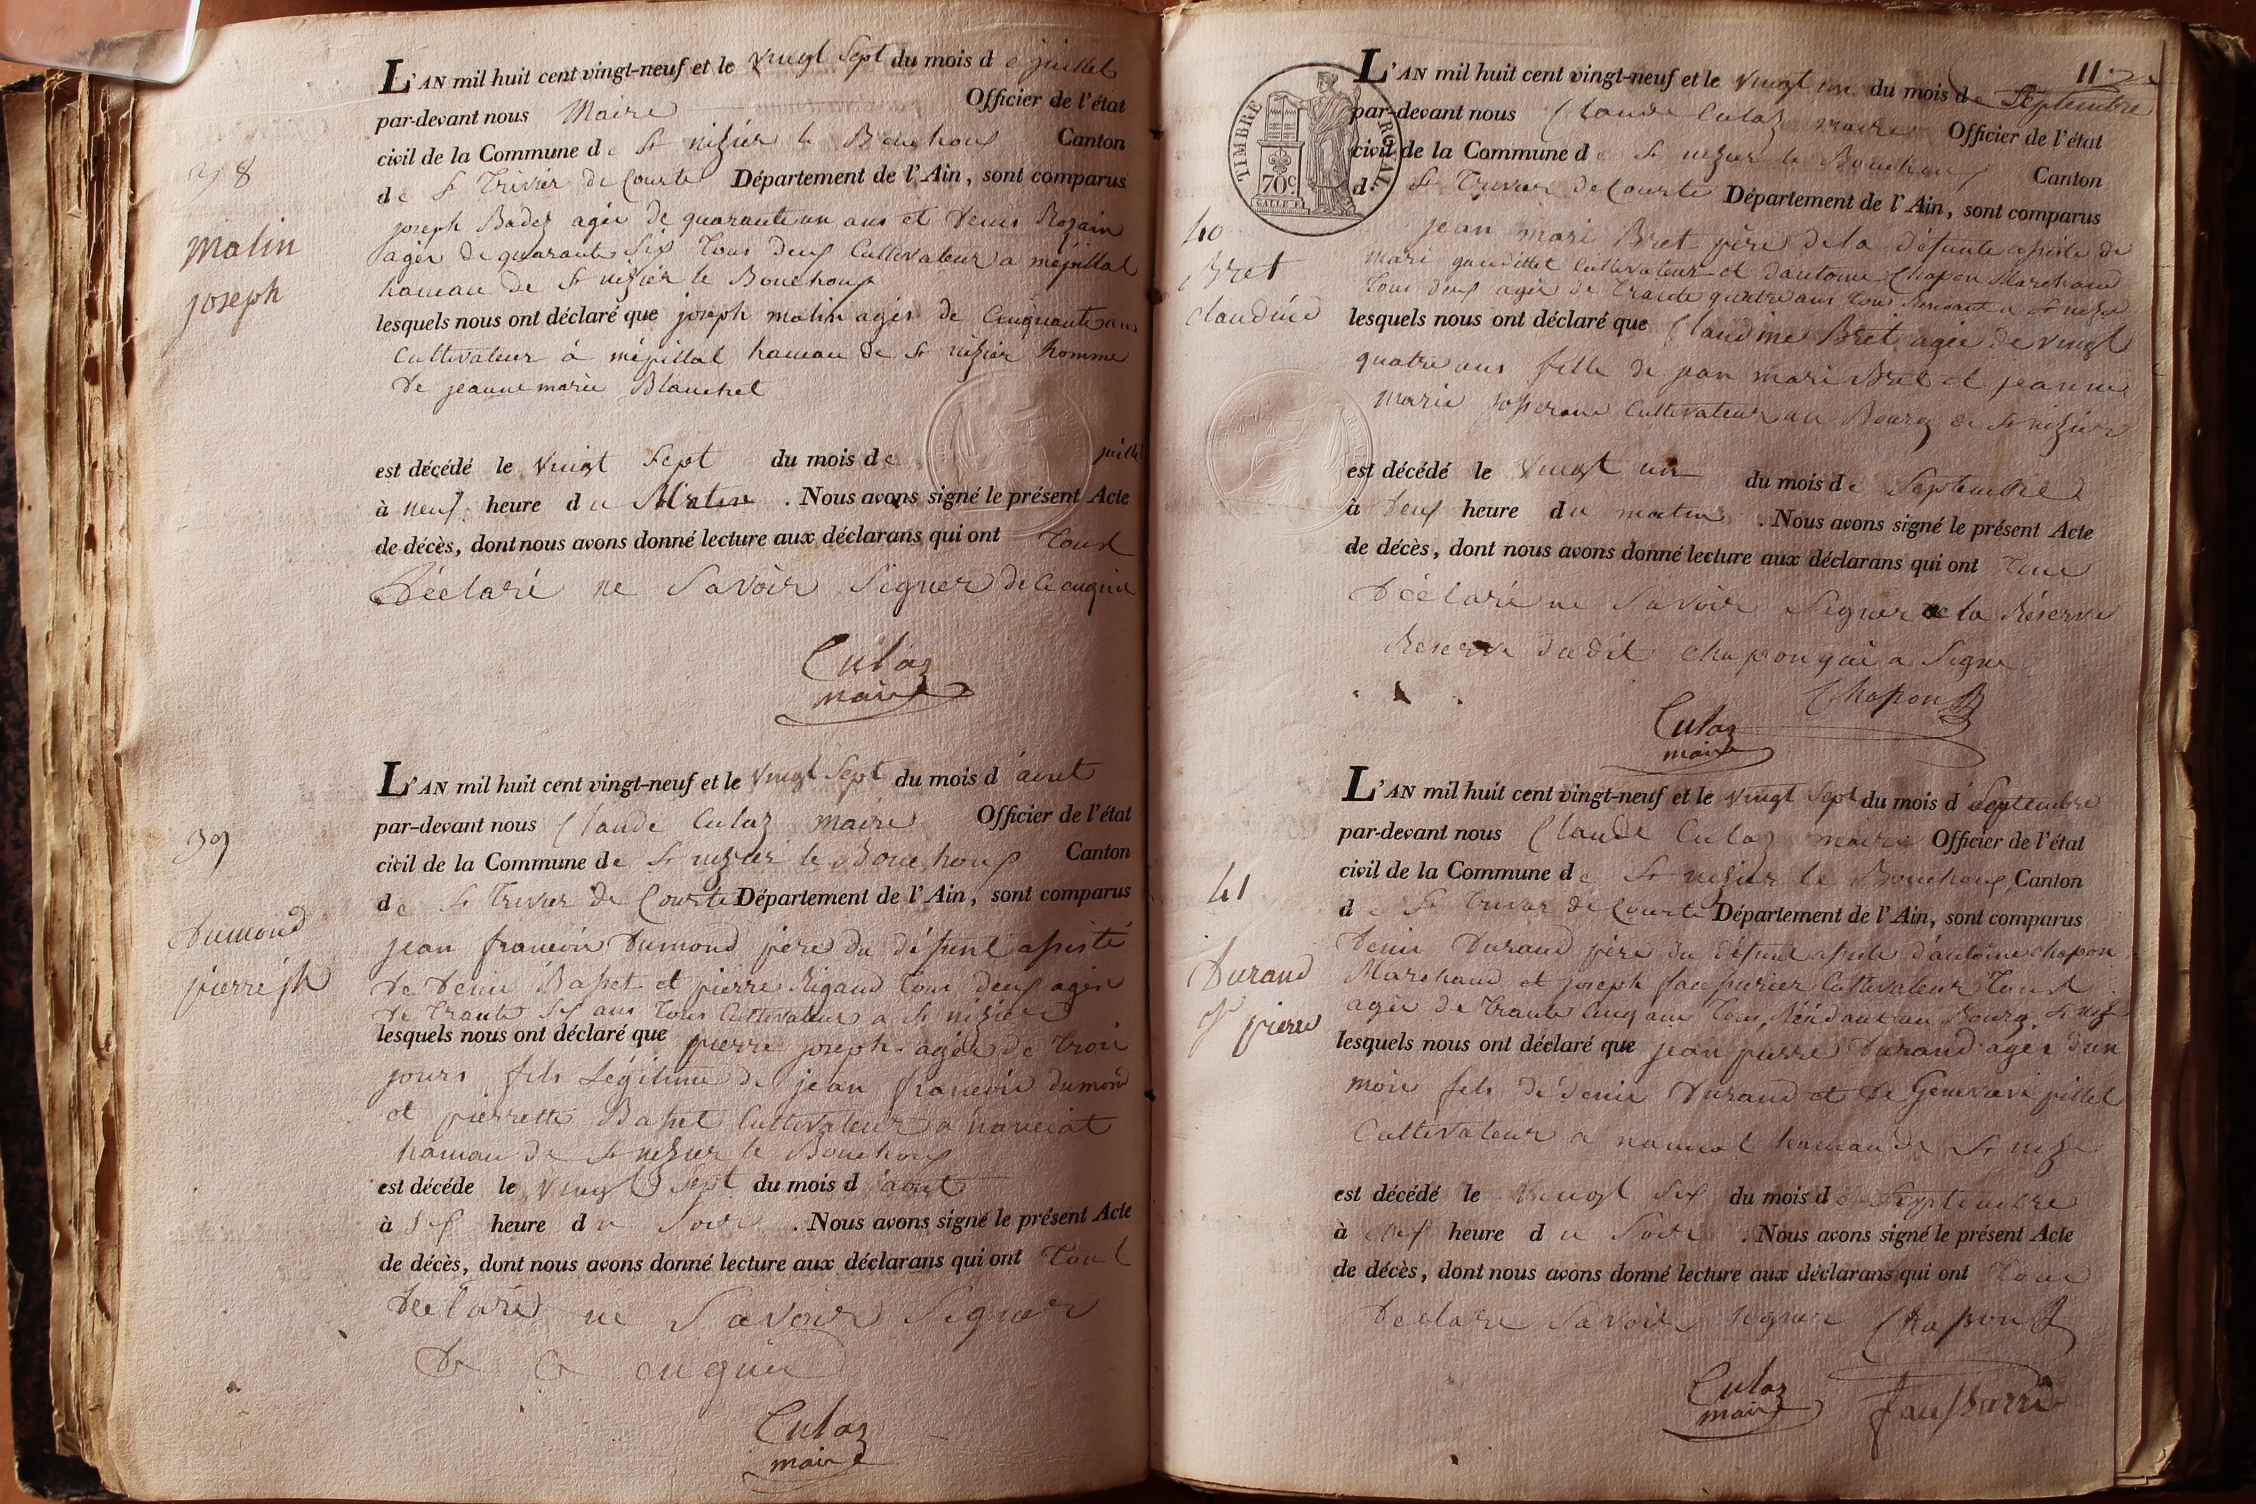 L'AN mil huit cent vingt-neuf et le vingt Sept du mois de juillet
par-devant nous Maire Officier de l'état
civil de la Commune de St nizier le Bouchoux Canton
de St Trivier de Courte Département de l'Ain, sont comparus
38
Malin
joseph
joseph Badez agée de quarante un ans et Denis
agée de quarante Six tous deux Cultivateur a mépillat
hameau de St nizier le Bouchoux
lesquels nous ont déclaré que joseph malin agés de Cinquante ans
Cultivateur à mépillat hameau de St nizier homme
De jeanne marie Blanchet
est décédé le vingt Sept du mois de juillet
à neuf heure du Matin . Nous avons signé le présent Acte
de décès, dont nous avons donné lecture aux déclarans qui ont tous
Déclaré ne Savoir Signer de ce enquis
Culaz
maire
L'AN mil huit cent vingt-neuf et le vingt Sept du mois d'aout
par-devant nous Claude Culaz maire Officier de l'état
civil de la Commune de St nizier le Bouchoux Canton
de St Trivier de Courte Département de l'Ain, sont comparus
39
Dumond
pierre jh
jean francois Dumond père du défunt assisté
de Denis Basset et pierre Rigaud tous deux agés
de Trante Six ans tous Cultivateurs a St nizier
lesquels nous ont déclaré que pierre joseph agée de trois
jours fils Légitime de jean francois dumond
et pierrette Basset Cultivateur a
hameau de St nizier le Bouchoux
est décéde le vingt Sept du mois d'aout
à Six heure du Soir . Nous avons signé le présent Acte
de décès, dont nous avons donné lecture aux déclarans qui ont tous
Déclaré ne Savoir Signer
De Ce enquis
Culaz
maire
112
TIMBRE ROYAL
70c.
L'AN mil huit cent vingt-neuf et le vingt un du mois de Septembre
par-devant nous Claude Culaz maire Officier de l'état
civil de la Commune de St nizier le Bouchoux Canton
de St Trivier de Courte Département de l'Ain, sont comparus
40
Bret
claudine
jean mari Bret père de la défunte assisté de
mari Cultivateur et d'antoine Chapon Marchand
tous deux agés de trante quatre ans tous a St nizier
lesquels nous ont déclaré que Claudine Bret agée de vingt
quatre ans fille de jean mari Bret et jeanne
marie Cultivateur au Bourg de St nizier
est décédé le vingt un du mois de Septembre
à Deux heure du matin . Nous avons signé le présent Acte
de décès, dont nous avons donné lecture aux déclarans qui ont tous
Déclaré ne Savoir Signer a la Réserve
Reserve dudit Chapon qui a Signe
Chapon
Culaz
maire
L'AN mil huit cent vingt-neuf et le vingt Sept du mois d Septembre
par-devant nous Claude Culaz maire Officier de l'état
civil de la Commune de St nizier le Bouchoux Canton
de St Trivier de Courte Département de l'Ain, sont comparus
41
Durand
jn pierre
Denis Durand père du défunt assisté d'antoine chapon
Marchand et joseph Cultivateur tous
agée de trante cinq ans tous Résidant au Bourg St niz
lesquels nous ont déclaré que jean pierre Durand agés d'un
mois fils de Denis Durand et de Genevieve pillet
Cultivateur a hameau de St niz
est décédé le vingt Six du mois de Septembre
à heure du Soir . Nous avons signé le présent Acte
de décès, dont nous avons donné lecture aux déclarans qui ont tous
Declaré Savoir signer Chapon
Culaz
maire